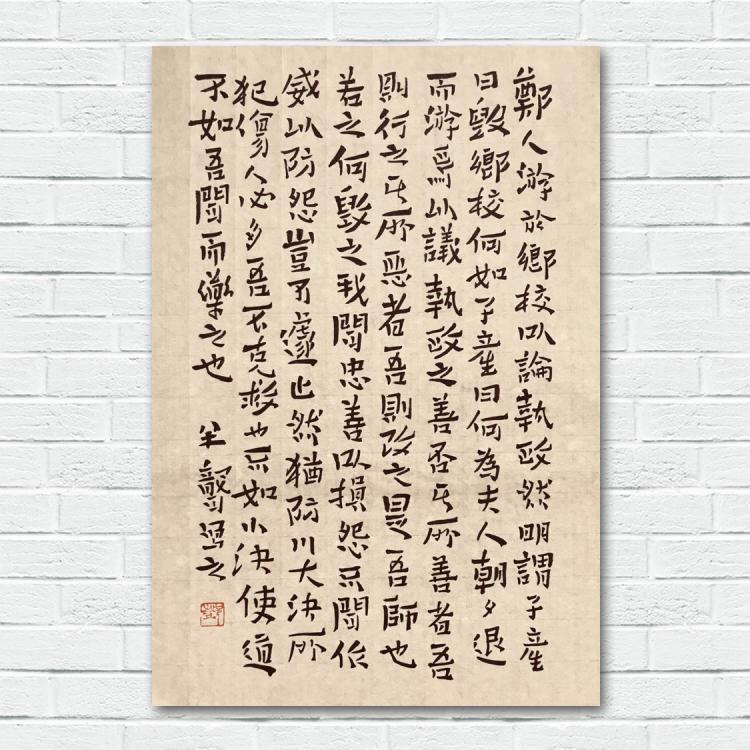 鄭人游於鄉校以論執政然明謂子產
曰毀鄉校何如子產曰何為夫人朝夕退
而游焉以議執政之善否其所善者吾
則行之其所惡者吾則改之是吾師也
若之何毀之我聞忠善以損怨不聞作
威以防怨豈不遽止然猶防川大決所
犯傷人必多吾不克救也不如小決使道
不如吾聞而藥之也